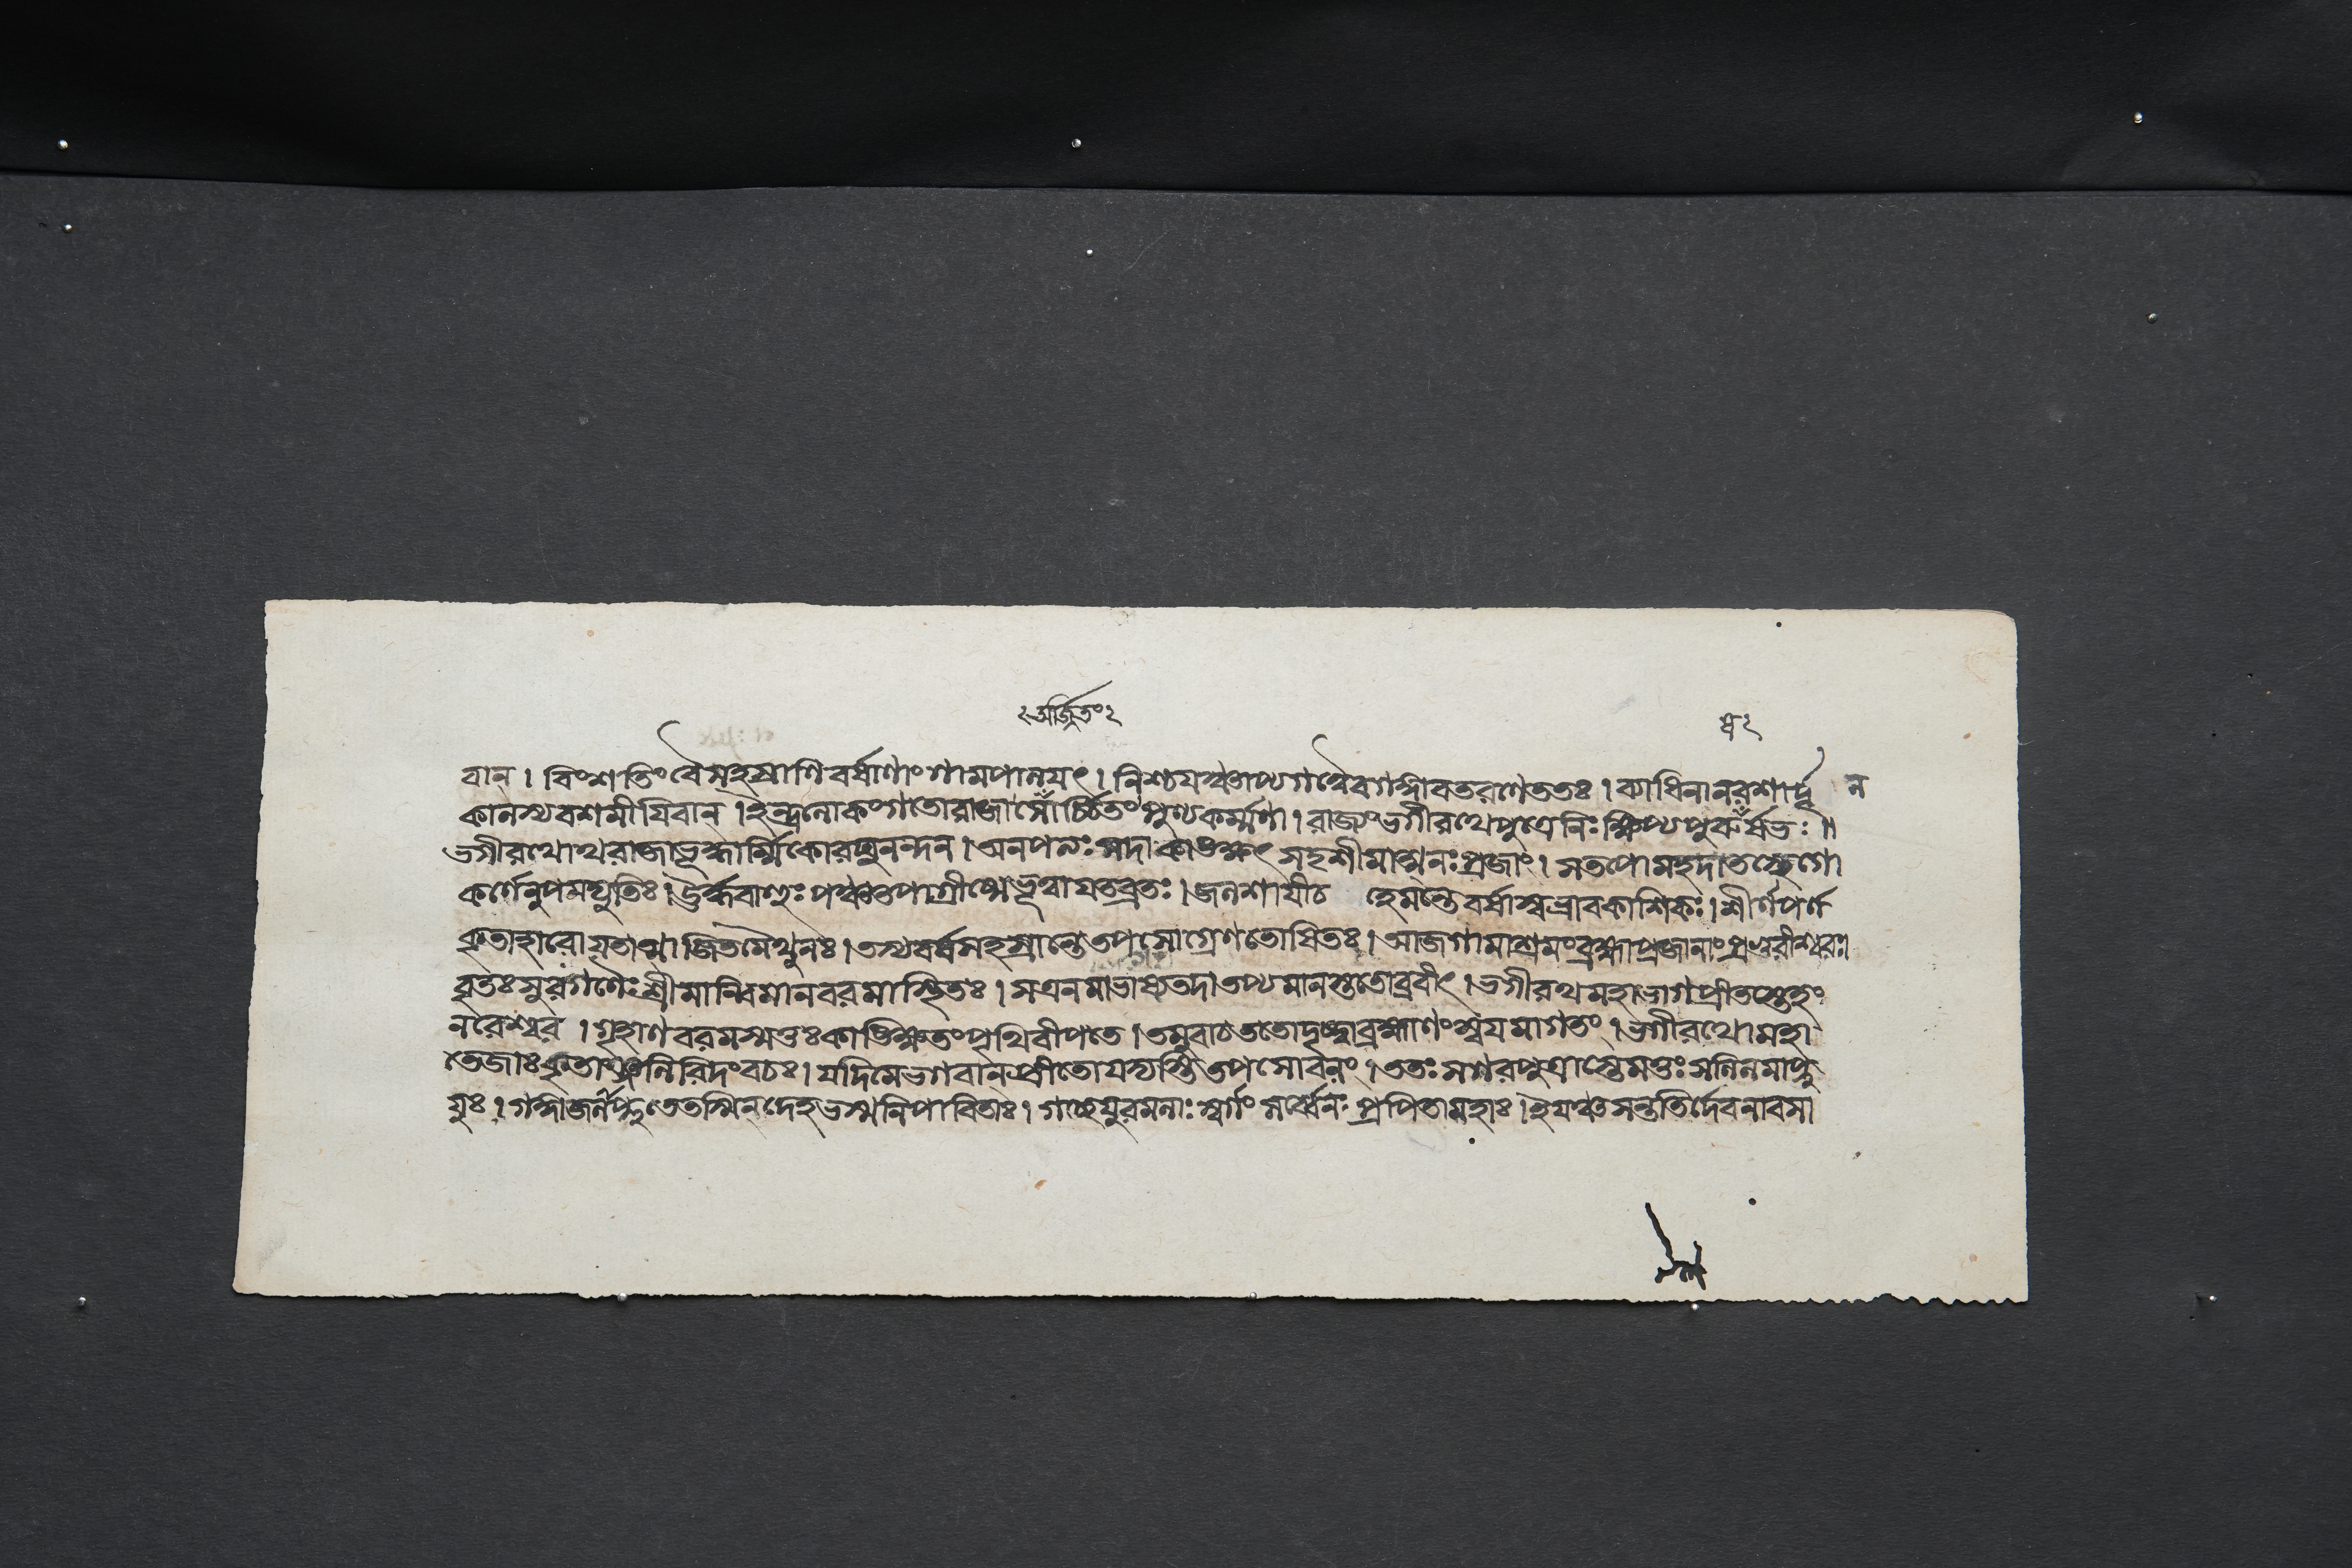 ২ অর্জিতং ২
ষ ২
বান্ । বিংশতিং বৈ সহস্রাণি বর্ষাণাং গামপালয়ৎ । নিশ্চয়ঞ্চাপ্যগত্বৈব গঙ্গাবতরণে ততঃ । ব্যাধিনা নরশার্দ্দূ ল
কালস্য বশমীয়িবান্ । ইন্দ্রলোকং গতো রাজা সোঁর্চ্চিতং পুণ্যকর্ম্মণা । রাজ্যং ভগীরথে পুত্রে নিঃক্ষিপ্য পুরুঁর্ষভঃ ॥
ভগীরথোথ রাজাভুদ্ধার্ম্মিকো রঘুনন্দন । অনপত্যঃ সদা কাঙক্ষৎ সদৃশীমাত্মনঃ প্রজাং । স তপো মহদাতস্থে গো
কর্ণেনুপমদ্যুতিঃ । ঊর্দ্ধবাহুঃ পঞ্চতপা গ্রীষ্মে ভূত্বা যতব্রতঃ । জলশায়ী চ হেমন্তে বর্ষাস্বভ্রাবকাশিকঃ । শীর্ণপর্ণ
কৃতাহারো যতাত্মা জিতমৈথুনঃ । তস্য বর্ষসহস্রান্তে তপসোগ্রেণ তোষিতঃ । আজগামাশ্রমং ব্রহ্মা প্রজানাং প্রভুরীশ্বরঃ
বৃতঃ সুরগণৈঃ শ্রীমান্বিমানবরমাস্থিতঃ । স এনমাভাষ্য তদা তপ্যমানস্ততোব্রবীৎ । ভগীরথ মহাভাগ প্রীতস্তেহং
নরেশ্বর । গৃহাণ বরমস্মত্তঃ কাঙিক্ষতং পৃথিবীপতে । তমুবাচ ততো দৃষ্ট্বা ব্রহ্মাণং স্বয়মাগতং । ভগীরথো মহা
তেজাঃ কৃতাঞ্জলিরিদং বচঃ । যদি মে ভগবান্প্রীতো যদ্যস্তি তপসো বলং । ততঃ সগরপুত্রাস্তে মত্তঃ সলিলমাপ্নু
যুঃ । গঙ্গাজলপ্লুতে তস্মিন্ দেহভস্মনি পাবিতাঃ । গচ্ছেয়ুরমলাঃ স্বর্গং সর্ব্বে নঃ প্রপিতামহাঃ । ইয়ঞ্চ সন্ততির্দেব নাবসা